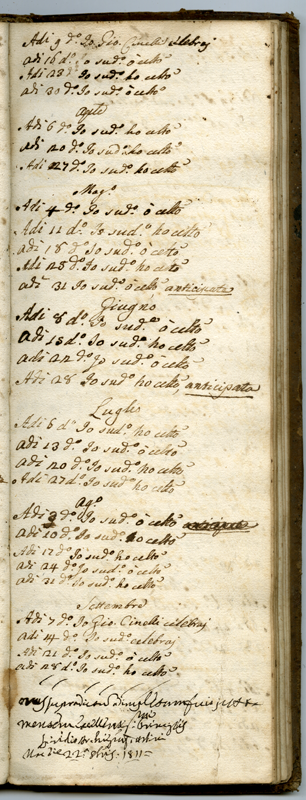 Adi 9 d.º Io Gio. Cinelli celebraj
adi 16 d.º Io sud.º ò celto
Adi 23 d.º Io sud.º ho celto
adi 30 d.º Io sud.º ò celto
Aple
Adi 6 d.º Io sud.º ho celto
adi 20 d.º Io sud.º ho celto
Adi 27 d.º Io sud.º ho celto
Mag.º
Adi 4 d.º Io sud.º ò celto
Adi 11 d.º Io sud.º ho celto
adi 18 d.º Io sud.º ò celto
Adi 25 d.º Io sud.º ho celto
adi 31 Io sud.º ò celto anticipata
Giugno
Adi 8 d.º Io sud.º ò celto
adi 15 d.º Io sud.º ho celto
adi 22 d.º Io sud.º ò celto
Adi 28 Io sud.º ho celto, anticipata
Luglio
Adi 6 d.º Io sud.º ho celto
adi 13 d.º Io sud.º ò celto
adi 20 d.º Io sud.º ho celto
Adi 27 d.º Io sud.º ho celto
Ag.º
Adi 3 d.º Io sud.º ò celto
adi 10 d.º Io sud.º ho celto
Adi 17 d.º Io sud.º ho celto
adi 24 d.º Io sud.º ò celto
adi 31 d.º Io sud.º ho celto
Settembre
Adi 7 d.º Io Gio. Cinelli celebraj
adi 14 d.º Io sud.º celebraj
Adi 21 d.º Io sud.º ò celto
adi 28 d.º Io sud.º ho celto
die 22